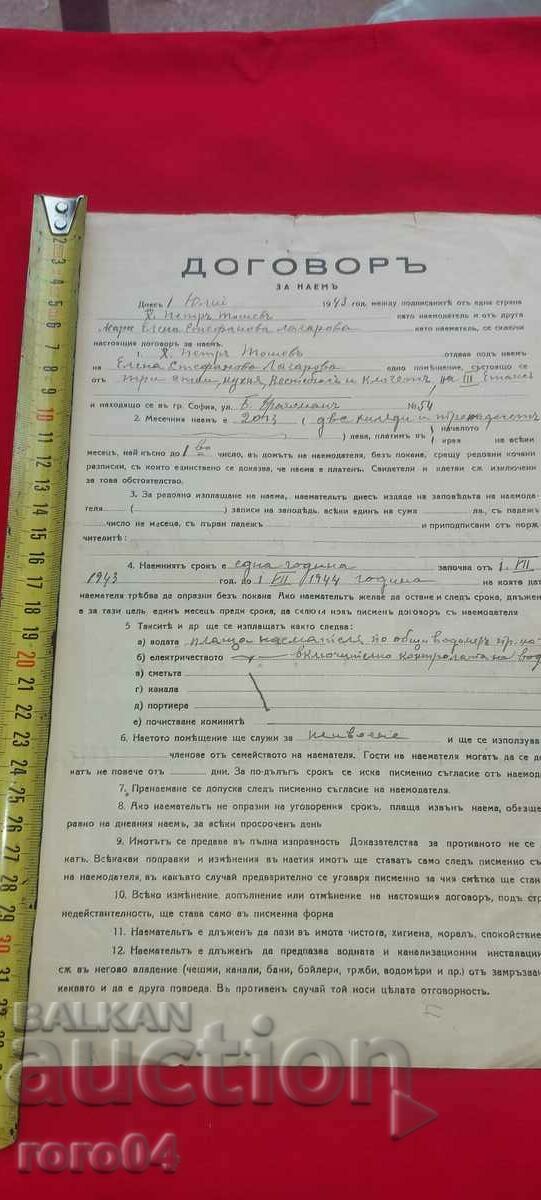 ДОГОВОРЪ
ЗА НАЕМЪ
Днесъ 1 Юлий 1943 год. между подписанитѣ отъ една страна
Х. Петръ Тошевъ като наемодатель и отъ друга
Мара Елена Стефанова Лазарова като наематель, се сключи
настоящия договоръ за наемъ.
1. Х. Петръ Тошевъ отдава подъ наемъ
на Елена Стефанова Лазарова едно помѣщение, състояще се
отъ три стаи, кухня, вестибюлъ и клозетъ, на III етажъ
и находящо се въ гр. София, ул. №54
2. Месечния наемъ е 2013 (две хиляди и тринадесетъ
) лева, платимъ въ началото края на всѣки
месецъ, най късно до 1 во число, въ домътъ на наемодателя, безъ покана, срещу редовни кочани
разписки, съ които единствено се доказва, че наема е платенъ. Свидетели и клетви сѫ изключени
за това обстоятелство.
3. За редовно изплащане на наема, наемательтъ днесъ издаде на заповѣдьта на наемода-
теля ( ) записи на заповѣдь, всѣки единъ на сума лв., съ падежъ
число не месеца, съ първи падежъ и приподписани отъ порѫ
чителитѣ:
4. Наемниятъ срокъ е една година започва отъ 1. VII
1943 год. до 1 VII 1944 година на която дата
наемателя трѣбва да опразни безъ покана Ако наемательтъ желае да остане и следъ срока, длъженъ
е за тази цель, единъ месецъ преди срока, да сключи новъ писменъ договоръ съ наемодателя
5 Таксите и др. ще се изплащатъ както следва:
а) водата плаща наемателя по общи водомеръ
б) електричеството включително контролата на
в) сметьта
г) канала
д) портиера
е) почистване коминитѣ
6. Наетото помѣщение ще служи за живѣене и ще се използува
членове отъ семейството на наемателя. Гости на наемателя могатъ да се до
катъ не повече отъ дни. За по-дългъ срокъ се иска писменно съгласие отъ наемод
7. Пренаемане се допуска следъ писменно съгласие на наемодателя.
8. Ако наемательтъ не опразни на уговорения срокъ, плаща извънъ наема, обезще
равно на дневния наемъ, за всѣки просроченъ день
9. Имотътъ се предава въ пълна изправность Доказателства за противното не се
катъ. Всѣкакви поправки и измѣнения въ наетия имотъ ще ставатъ само следъ писменно съ
на наемодателя, въ какъвто случай предварително се уговаря писменно за чия смѣтка ще стан
10. Всѣко измѣнение, допълнение или отмѣнение на настоящия договоръ, подъ стр
недействителность, ще става само въ писменна форма
11. Наемательтъ е длъженъ да пази въ имота чистота, хигиена, моралъ, спокойствие
12. Наемательтъ е длъженъ да предпазва водната и канализационни инсталации
сѫ въ негово владение (чешми, канали, бани, бойлери, трѫби, водомѣри и пр.) отъ замръзван
каквато и да е друга повреда. Въ противенъ случай той носи цѣлата отговорность.
BALKAN
auction
roro04